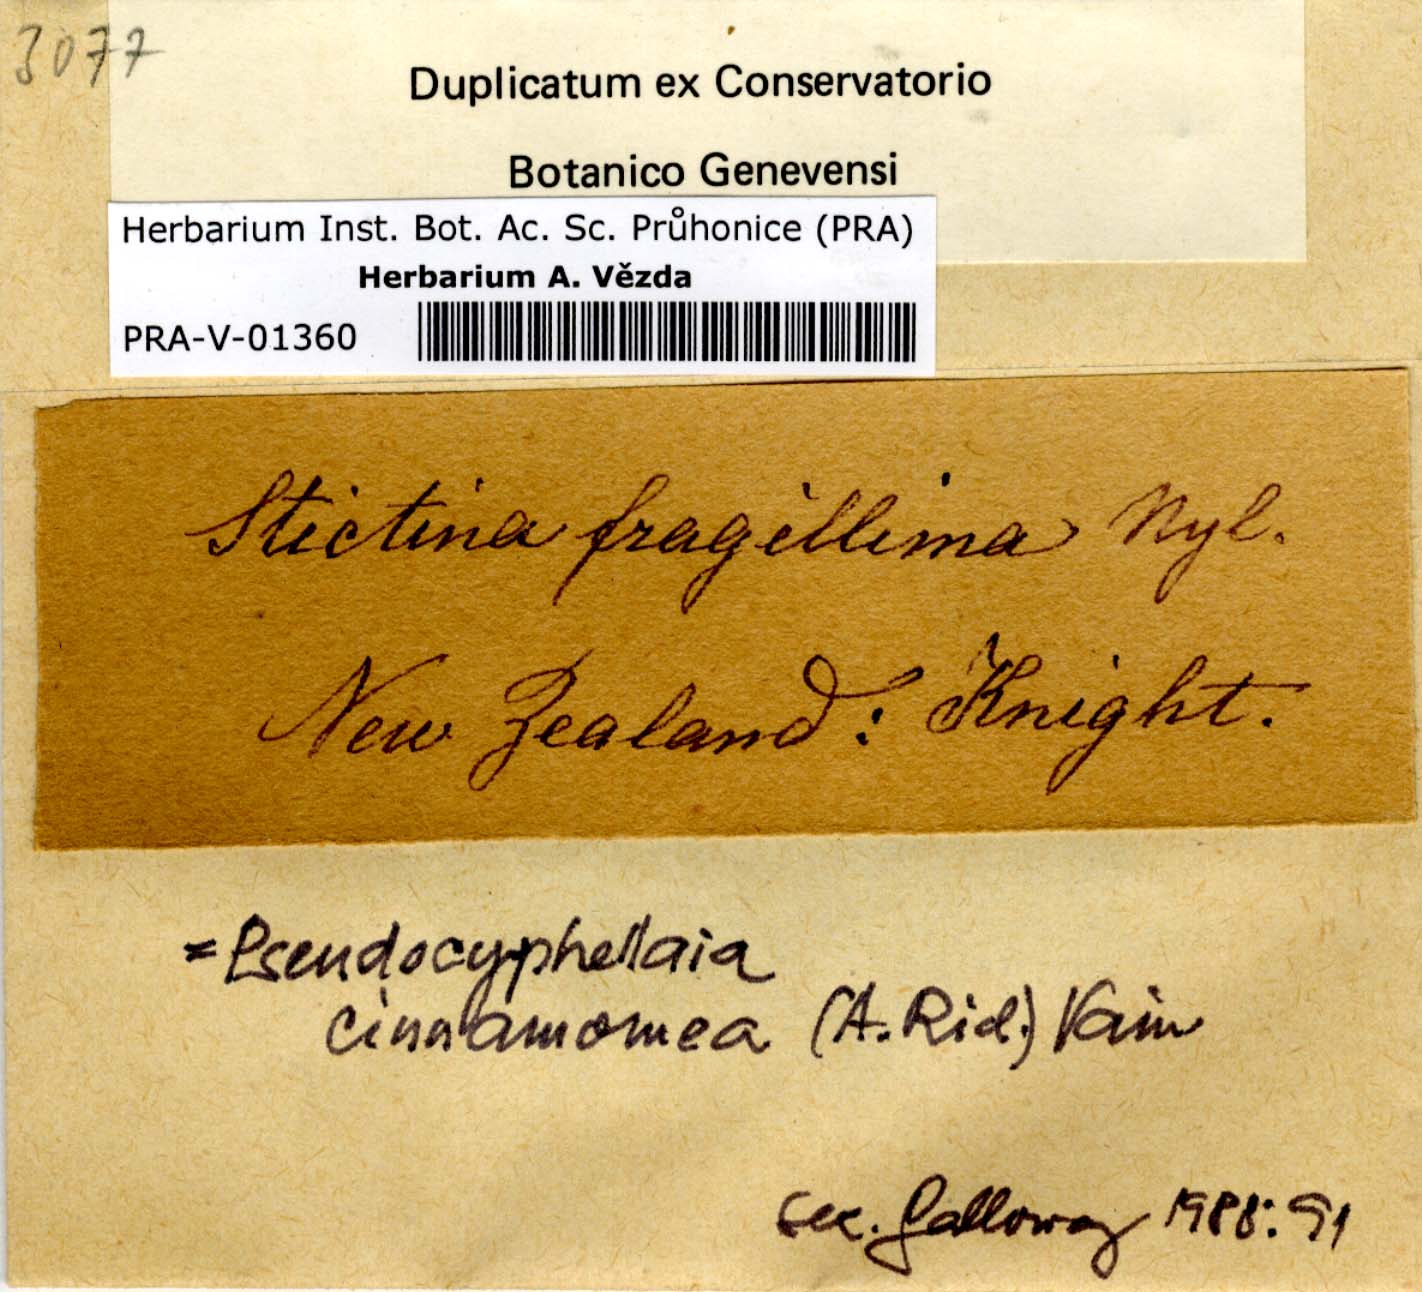 3077
Duplicatum ex Conservatorio
Botanico Genevensi
Herbarium Inst. Bot. Ac. Sc. Průhonice (PRA)
Herbarium A. Vězda
PRA-V-01360
Stictina fragillima Nyl.
New Zealand: Knight.
= Pseudocyphellaia
cinnamomea (A. Rid.) Vain
sec. Galloway 1988: 91